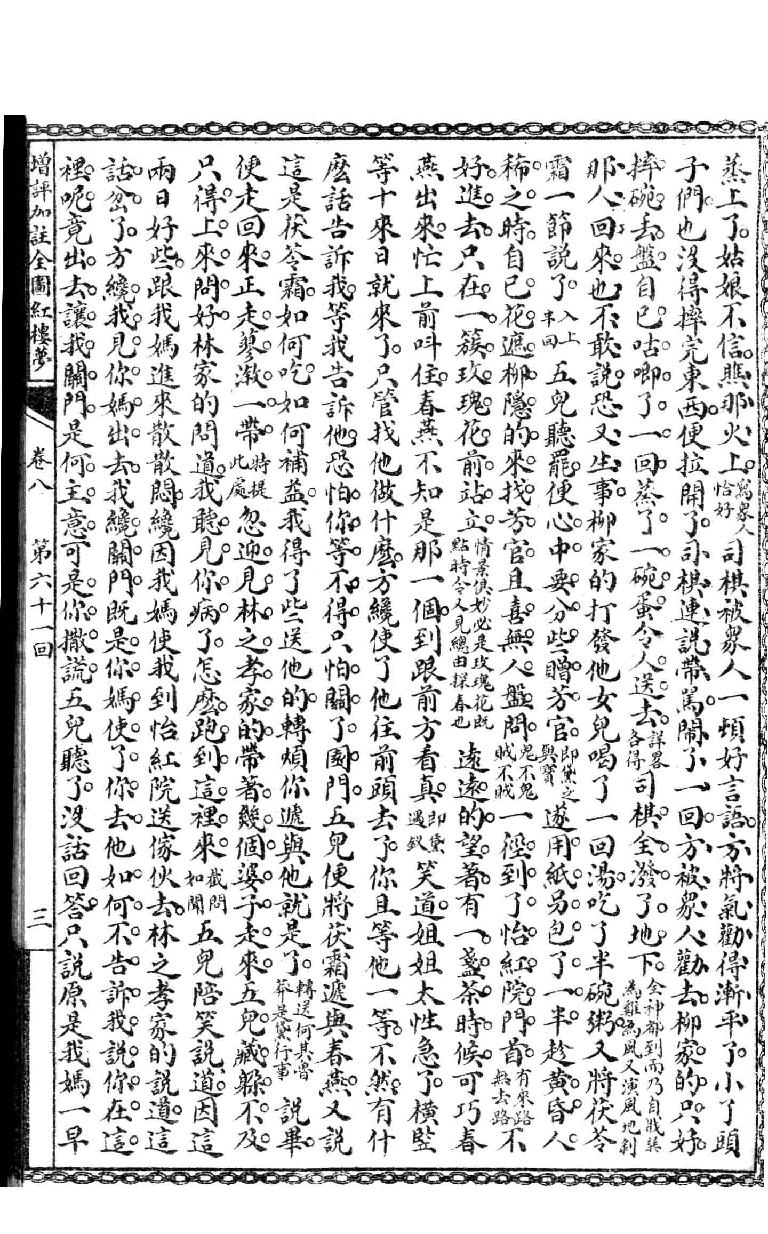 蒸上了姑娘不信瞧那火上寫衆人恰好司棋被衆人一頓好言語方將氣勸得漸平了小丫頭
子們也沒得摔完東西便拉開了司棋連說帶罵鬧了一回方被衆人勸去柳家的只好
摔碗丟盤自己咕唧了一回蒸了一碗蛋令人送去詳畧各得司棋全潑了地下
那人回來也不敢說恐又生事柳家的打發他女兒喝了一回湯吃了半碗粥又將茯苓
霜一節說了入上半回五兒聽罷便心中要分些贈芳官遂用紙另包了一半趁黃昏人
稀之時自己花遮柳隱的來找芳官且喜無人盤問鬼不鬼賊不賊一徑到了怡紅院門首有來路無去路不
好進去只在一簇玫瑰花前站立情景俱妙必是玫瑰花既點時令又見總由探春也遠遠的望著有一盞茶時候可巧春
燕出來忙上前呌住春燕不知是那一個到跟前方看真笑道姐姐太性急了橫豎
等十來日就來了只管找他做什麽方纔使了他往前頭去了你且等他一等不然有什
麽話告訴我等我告訴他恐怕你等不得只怕關了園門五兒便將茯霜遞與春燕又說
這是茯苓霜如何吃如何補益我得了些送他的轉煩你遞與他就是了說畢
便走回來正走蓼漵一帶特提此處忽迎見林之孝家的帶著幾個婆子走來五兒藏躱不及
只得上來問好林家的問道我聽見你病了怎麽跑到這裡來截問如聞五兒陪笑說道因這
兩日好些跟我媽進來散散悶纔因我媽使我到怡紅院送傢伙去林之孝家的說道這
話岔了方纔我見你媽出去我纔關門既是你媽使了你去他如何不告訴我說你在這
裡呢竟出去讓我關門是何主意可是你撒謊五兒聽了沒話回答只說原是我媽一早
增評加註全圖紅樓夢
卷八
第六十一回
三